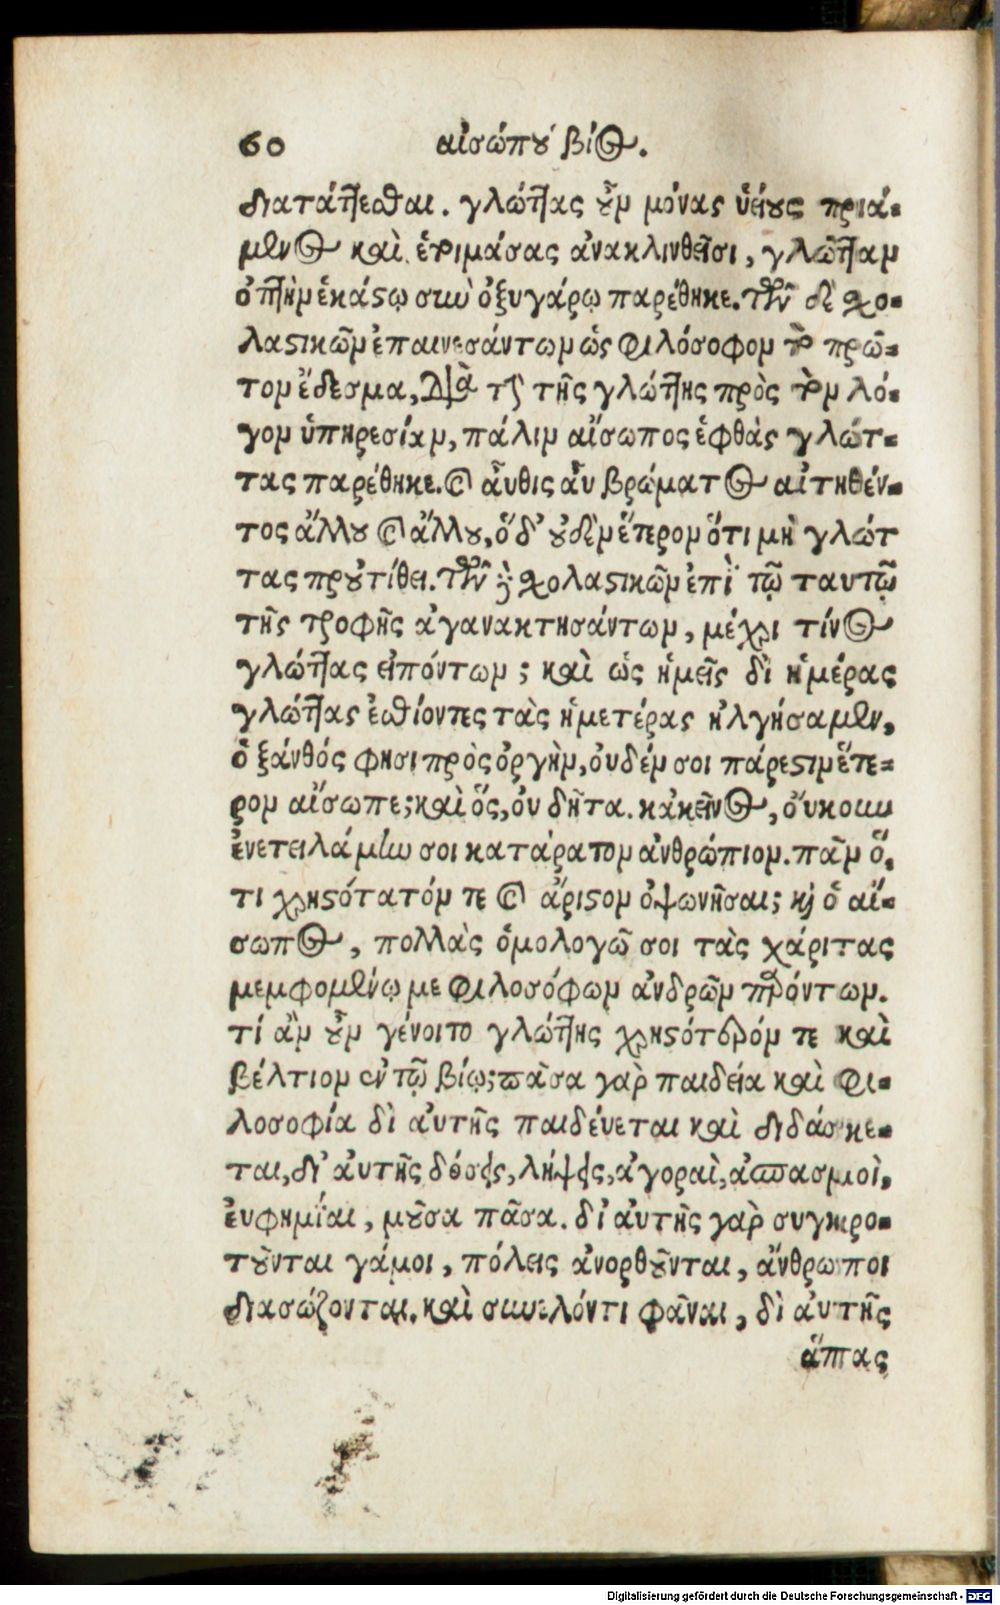 60 αἰσώπου βίος.
διατάττεσθαι. γλώττας οὖν μόνας ὑείους πριά-
μενος καὶ ἑτοιμάσας ἀνακλινθεῖσι, γλῶτταν
ὀπτὴν ἑκάστῳ σὺν ὀξυγάρῳ παρέθηκε. τῶν δὲ σχο-
λαστικῶν ἐπαινεσάντων ὡς φιλόσοφον τὸ πρῶ-
τον ἔδεσμα, διὰ τὴν τῆς γλώττης πρὸς τὸν λό-
γον ὑπηρεσίαν, πάλιν αἴσωπος ἑφθὰς γλώτ-
τας παρέθηκε. καὶ αὖθις αὖ βρώματος αἰτηθέν-
τος ἄλλου καὶ ἄλλου, ὁ δ' οὐδὲν ἕτερον ὅτι μὴ γλώτ
τας προυτίθει. τῶν δὲ σχολαστικῶν ἐπὶ τῷ ταυτῷ
τῆς τροφῆς ἀγανακτησάντων, μέχρι τίνος
γλώττας εἰπόντων; καὶ ὡς ἡμεῖς δι ἡμέρας
γλώττας ἐσθίοντες τὰς ἡμετέρας ἠλγήσαμεν,
ὁ ξάνθός φησι πρὸς ὀργὴν, οὐδέν σοι πάρεστιν ἕτε-
ρον αἴσωπε; καὶ ὅς, οὐ δῆτα. κἀκεῖνος, οὔκουν
ἐνετειλάμην σοι κατάρατον ἀνθρώπιον. πᾶν ὅ,
τι χρηστότατόν τε καὶ ἄριστον ὀψωνῆσαι; καὶ ὁ αἴ-
σωπος, πολλὰς ὁμολογῶ σοι τὰς χάριτας
μεμφομένῳ με φιλοσόφων ἀνδρῶν παρόντων.
τί ἂν οὖν γένοιτο γλώττης χρηστότερόν τε καὶ
βέλτιον ἐν τῷ βίῳ; πᾶσα γὰρ παιδεία καὶ φι-
λοσοφία δι αὐτῆς παιδεύεται καὶ διδάσκε-
ται, δι' αὐτῆς δόσεις, λήψεις, ἀγοραὶ, ἀσπασμοὶ,
ἐυφημίαι, μοῦσα πᾶσα. δι αὐτῆς γὰρ συγκρο-
τοῦνται γάμοι, πόλεις ἀνορθοῦνται, ἄνθρωποι
διασώζονται. καὶ συνελόντι φᾶναι, δι αὐτῆς
ἅπας
Digitalisierung gefördert durch die Deutsche Forschungsgemeinschaft - DFG